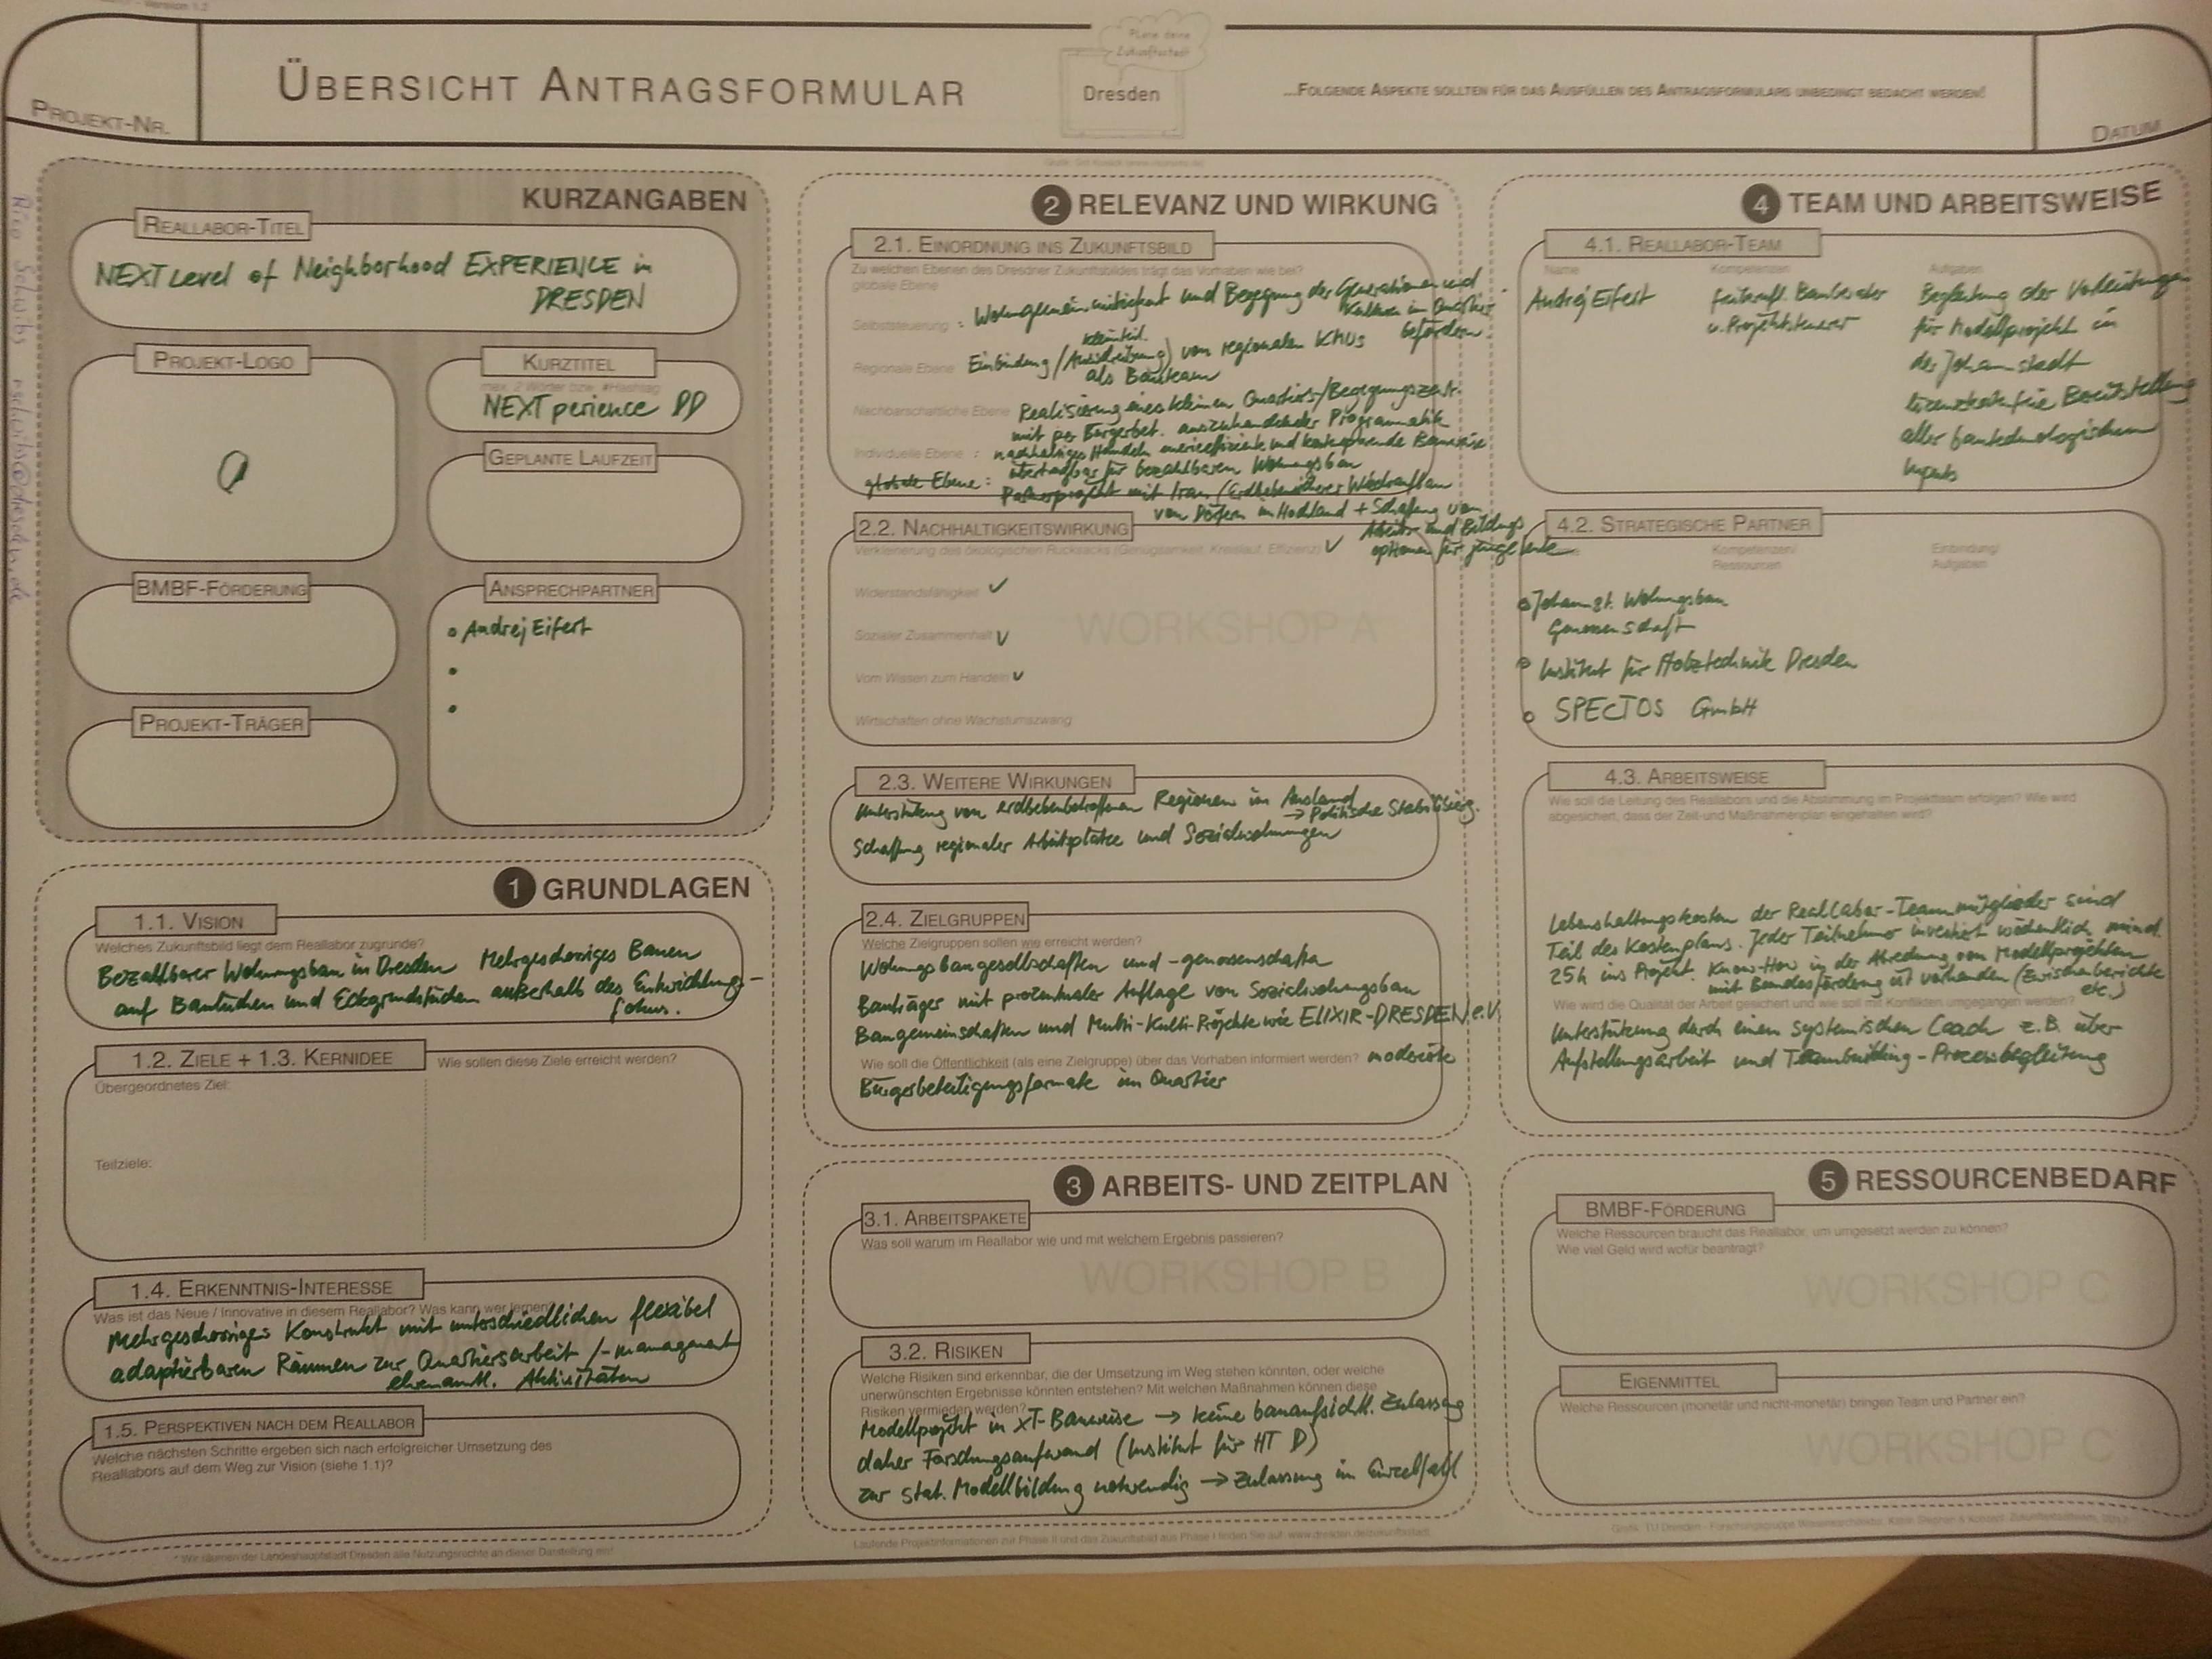 Version 1.2
PROJEKT-NR.
ÜBERSICHT ANTRAGSFORMULAR
Plane deine
Zukunftsstadt
Dresden
...FOLGENDE ASPEKTE SOLLTEN FÜR DAS AUSFÜLLEN DES ANTRAGSFORMULARS UNBEDINGT BEDACHT WERDEN!
DATUM
KURZANGABEN
REALLABOR-TITEL
NEXT Level of Neighborhood EXPERIENCE in
DRESDEN
PROJEKT-LOGO
KURZTITEL
max. 2 Wörter bzw. #Hashtag
NEXT perience DD
GEPLANTE LAUFZEIT
BMBF-FÖRDERUNG
ANSPRECHPARTNER
Andrej Eifert
PROJEKT-TRÄGER
1 GRUNDLAGEN
1.1. VISION
Welches Zukunftsbild liegt dem Reallabor zugrunde?
Bezahlbarer Wohnungsbau in Dresden Mehrgeschossiges Bauen
auf Baulücken und Eckgrundstücken außerhalb des Entwicklungs-
fokus.
1.2. ZIELE + 1.3. KERNIDEE
Wie sollen diese Ziele erreicht werden?
Übergeordnetes Ziel:
Teilziele:
1.4. ERKENNTNIS-INTERESSE
Was ist das Neue / Innovative in diesem Reallabor? Was kann wer lernen?
Mehrgeschossiges Konstrukt mit unterschiedlichen flexibel
adaptierbaren Räumen zur Quartiersarbeit /-management
ehrenamtl. Aktivitäten
1.5. PERSPEKTIVEN NACH DEM REALLABOR
Welche nächsten Schritte ergeben sich nach erfolgreicher Umsetzung des
Reallabors auf dem Weg zur Vision (siehe 1.1)?
* Wir räumen der Landeshauptstadt Dresden alle Nutzungsrechte an dieser Darstellung ein!
2 RELEVANZ UND WIRKUNG
2.1. EINORDNUNG INS ZUKUNFTSBILD
Zu welchen Ebenen des Dresdner Zukunftsbildes trägt das Vorhaben wie bei?
globale Ebene
Selbststeuerung : und Begegnung der Generationen und
Kulturen im Quartier
befördern.
kleinteil.
Regionale Ebene Einbindung / (Ausschreibung) von regionalen KMUs
als Bauteam
Nachbarschaftliche Ebene Realisierung eines kleinen Quartiers-/Begegnungszentr.
mit per Bürgerbet. auszuhandelnder Programmatik
Individuelle Ebene : nachhaltiges Handeln und Bauweise
übertragbar für bezahlbaren Wohnungsbau
globale Ebene: Partnerprojekt mit Iran (Erdbebensicherer Wiederaufbau
von Dörfern im Hochland + Schaffung von
Arbeits- und Bildungs
optionen für junge Leute
2.2. NACHHALTIGKEITSWIRKUNG
Verkleinerung des ökologischen Rucksacks (Genügsamkeit, Kreislauf, Effizienz) ✓
Widerstandsfähigkeit ✓
Sozialer Zusammenhalt ✓
WORKSHOP A
Vom Wissen zum Handeln ✓
Wirtschaften ohne Wachstumszwang
2.3. WEITERE WIRKUNGEN
Unterstützung von erdbebenbetroffenen Regionen im Ausland
→ Politische Stabilisierg.
Schaffung regionaler Arbeitsplätze und Sozialwohnungen
2.4. ZIELGRUPPEN
Welche Zielgruppen sollen wie erreicht werden?
Wohnungsbaugesellschaften und -genossenschaften
Bauträger mit prozentualer Auflage von Sozialwohnungsbau
Baugemeinschaften und Multi-Kulti-Projekte wie ELIXIR-DRESDEN e.V.
Wie soll die Öffentlichkeit (als eine Zielgruppe) über das Vorhaben informiert werden? moderierte
Bürgerbeteiligungsformate im Quartier
3 ARBEITS- UND ZEITPLAN
3.1. ARBEITSPAKETE
Was soll warum im Reallabor wie und mit welchem Ergebnis passieren?
WORKSHOP B
3.2. RISIKEN
Welche Risiken sind erkennbar, die der Umsetzung im Weg stehen könnten, oder welche
unerwünschten Ergebnisse könnten entstehen? Mit welchen Maßnahmen können diese
Risiken vermieden werden?
Modellprojekt in XT-Bauweise → keine bauaufsichtl. Zulassung
daher Forschungsaufwand (Institut für HT D)
zur stat. Modellbildung notwendig → Zulassung im Einzelfall
Laufende Projektinformationen zur Phase II und das Zukunftsbild aus Phase I finden Sie auf: www.dresden.de/zukunftsstadt
4 TEAM UND ARBEITSWEISE
4.1. REALLABOR-TEAM
Name Kompetenzen Aufgaben
Andrej Eifert
freiberufl. Bauberater
u. Projektsteuerer
Begleitung der Vorleistungen
für Modellprojekt in
der Johannstadt
lizenzkostenfreie Bereitstellung
aller bautechnologischen
Inputs
4.2. STRATEGISCHE PARTNER
Kompetenzen/
Ressourcen
Einbindung/
Aufgaben
Johannst. Wohnungsbau
Genossenschaft
Institut für Holztechnik Dresden
SPECTOS GmbH
4.3. ARBEITSWEISE
Wie soll die Leitung des Reallabors und die Abstimmung im Projektteam erfolgen? Wie wird
abgesichert, dass der Zeit-und Maßnahmenplan eingehalten wird?
Lebenshaltungskosten der Reallabor-Teammitglieder sind
Teil des Kostenplans. Jeder Teilnehmer investiert wöchentlich mind.
25h ins Projekt. Know-How in der Abredung von Modellprojekten
mit Bundesförderung ist vorhanden (Zwischenberichte
etc.)
Wie wird die Qualität der Arbeit gesichert und wie soll mit Konflikten umgegangen werden?
Unterstützung durch einen systemischen Coach z.B. über
Aufstellungsarbeit und Teambuilding-Prozessbegleitung
5 RESSOURCENBEDARF
BMBF-FÖRDERUNG
Welche Ressourcen braucht das Reallabor, um umgesetzt werden zu können?
Wie viel Geld wird wofür beantragt?
WORKSHOP C
EIGENMITTEL
Welche Ressourcen (monetär und nicht-monetär) bringen Team und Partner ein?
WORKSHOP C
Rico Schwibs rschwibs@dresden.de